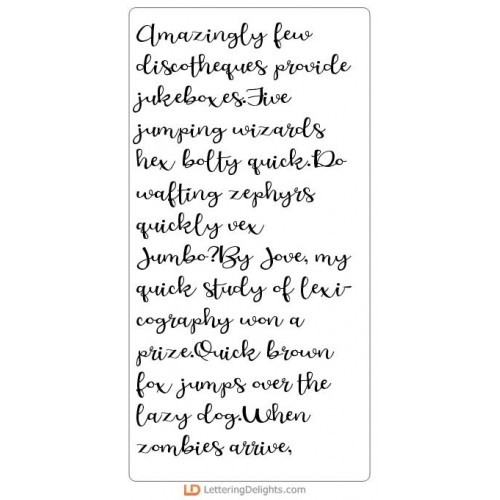 Amazingly few
discotheques provide
jukeboxes.Five
jumping wizards
hex bolty quick.Do
wafting zephyrs
quickly vex
Jumbo?By Jove, my
quick study of lexi-
cography won a
prize.Quick brown
fox jumps over the
lazy dog.When
zombies arrive,
LD LetteringDelights.com